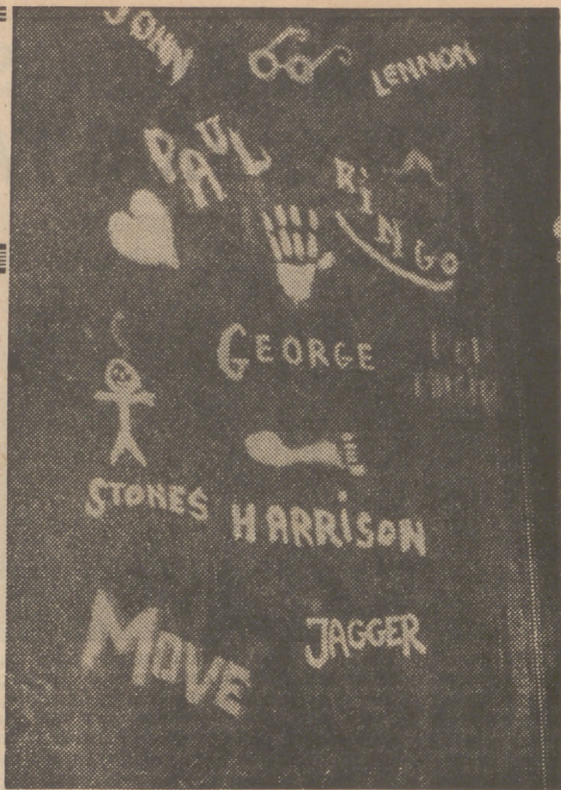 JOHN
LENNON
PAUL
RiNGO
GEORGE
STONES
HARRiSON
MOVE
JAGGER